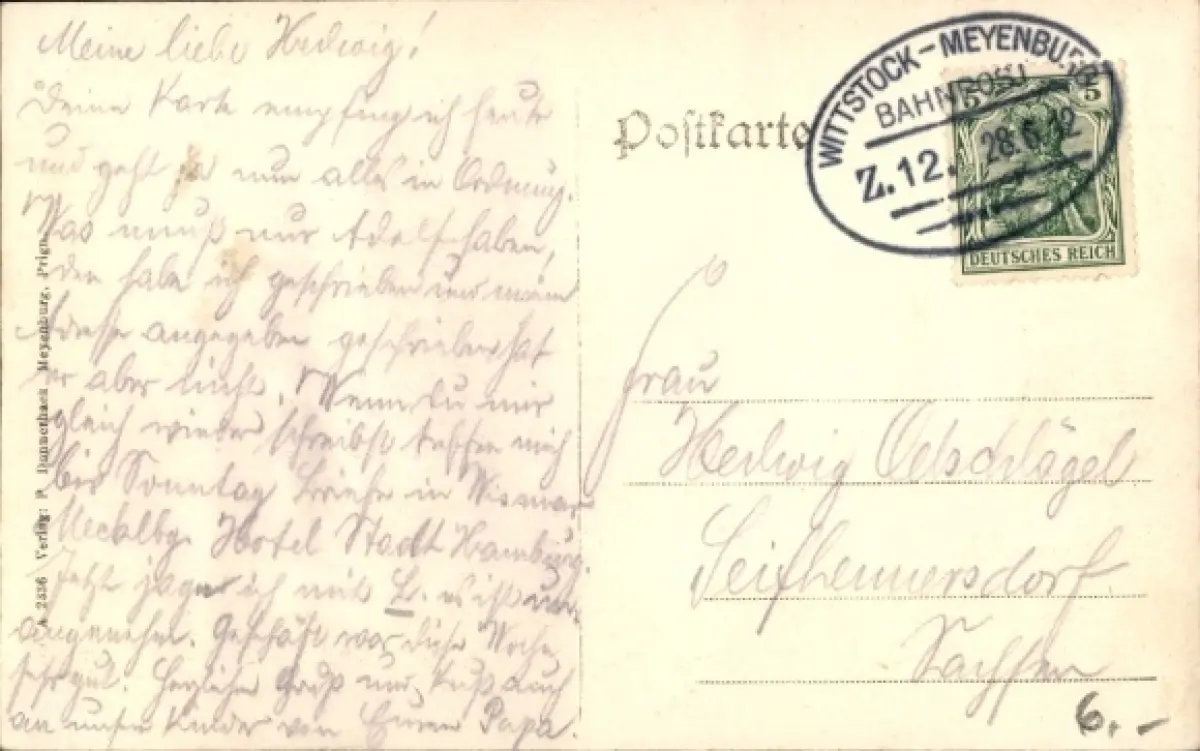 Meine liebe Hedwig!
Deine Karte empfing ich heute
und geht ja nun alles in Ordnung.
Was muß nur Adolf haben,
dem habe ich geschrieben und meine
Adresse angegeben geschrieben hat
er aber nicht. Wenn Du mir
gleich wieder schreibst treffen mich
bis Sonntag Briefe in Wismar
Mecklbg. Hotel Stadt Hamburg.
Jetzt jage ich mit L. es ist un-
angenehm. Geschäft war diese Woche
sehr gut. Herzlichen Gruß und Kuß auch
an unsere Kinder von Euren Papa.
A 2336 Verlag: P. Dannehaek Meyenburg, Prign.
Postkarte
WITTSTOCK-MEYENBURG
BAHNPOST
Z.12. 28.6.12
5 5
DEUTSCHES REICH
Frau
Hedwig Oelschlägel
Seifhennersdorf.
Sachsen
6.-